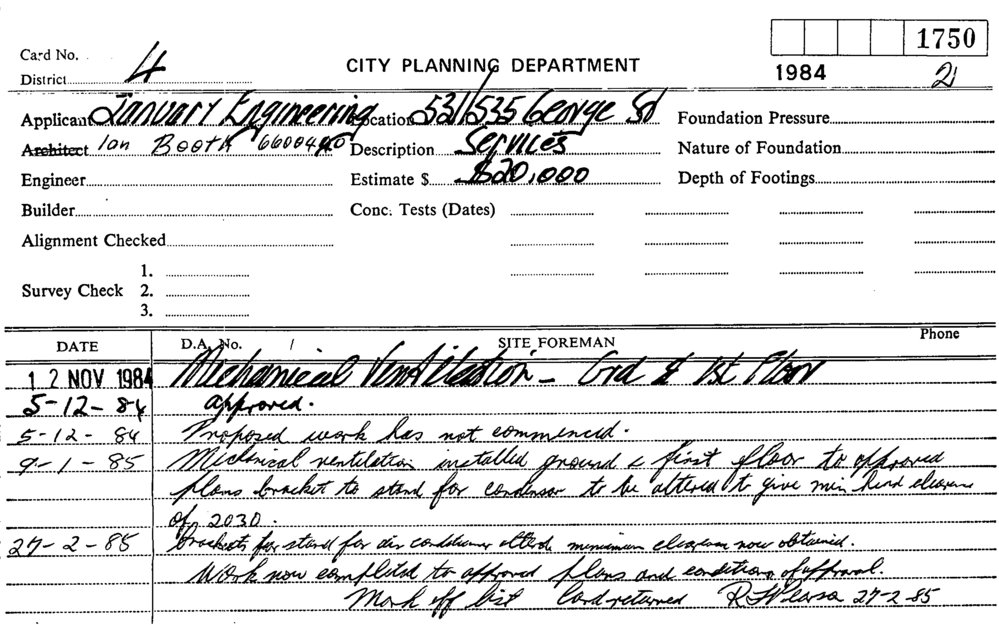 1750
Card No.
CITY PLANNING DEPARTMENT
1984
2
District 4
Applicant January Engineering
Location 531/535 George St
Foundation Pressure
Architect Ian Booth 6600440
Description Services
Nature of Foundation
Engineer
Estimate $ $20,000
Depth of Footings
Builder
Conc. Tests (Dates)
Alignment Checked
1.
Survey Check 2.
3.
DATE D.A. No. / SITE FOREMAN Phone
12 NOV 1984 Mechanical Ventilation - Grd & 1st Floor
5-12-84 approved.
5-12-84 Proposed work has not commenced.
9-1-85 Mechanical ventilation installed ground & first floor to approved
plans bracket to stand for condensor to be altered to give min head clearance
of 2030.
27-2-85 brackets for stand for air conditioner minimum clearance now obtained.
Work now completed to approved plans and conditions of approval.
Mark off list Card returned 27-2-85